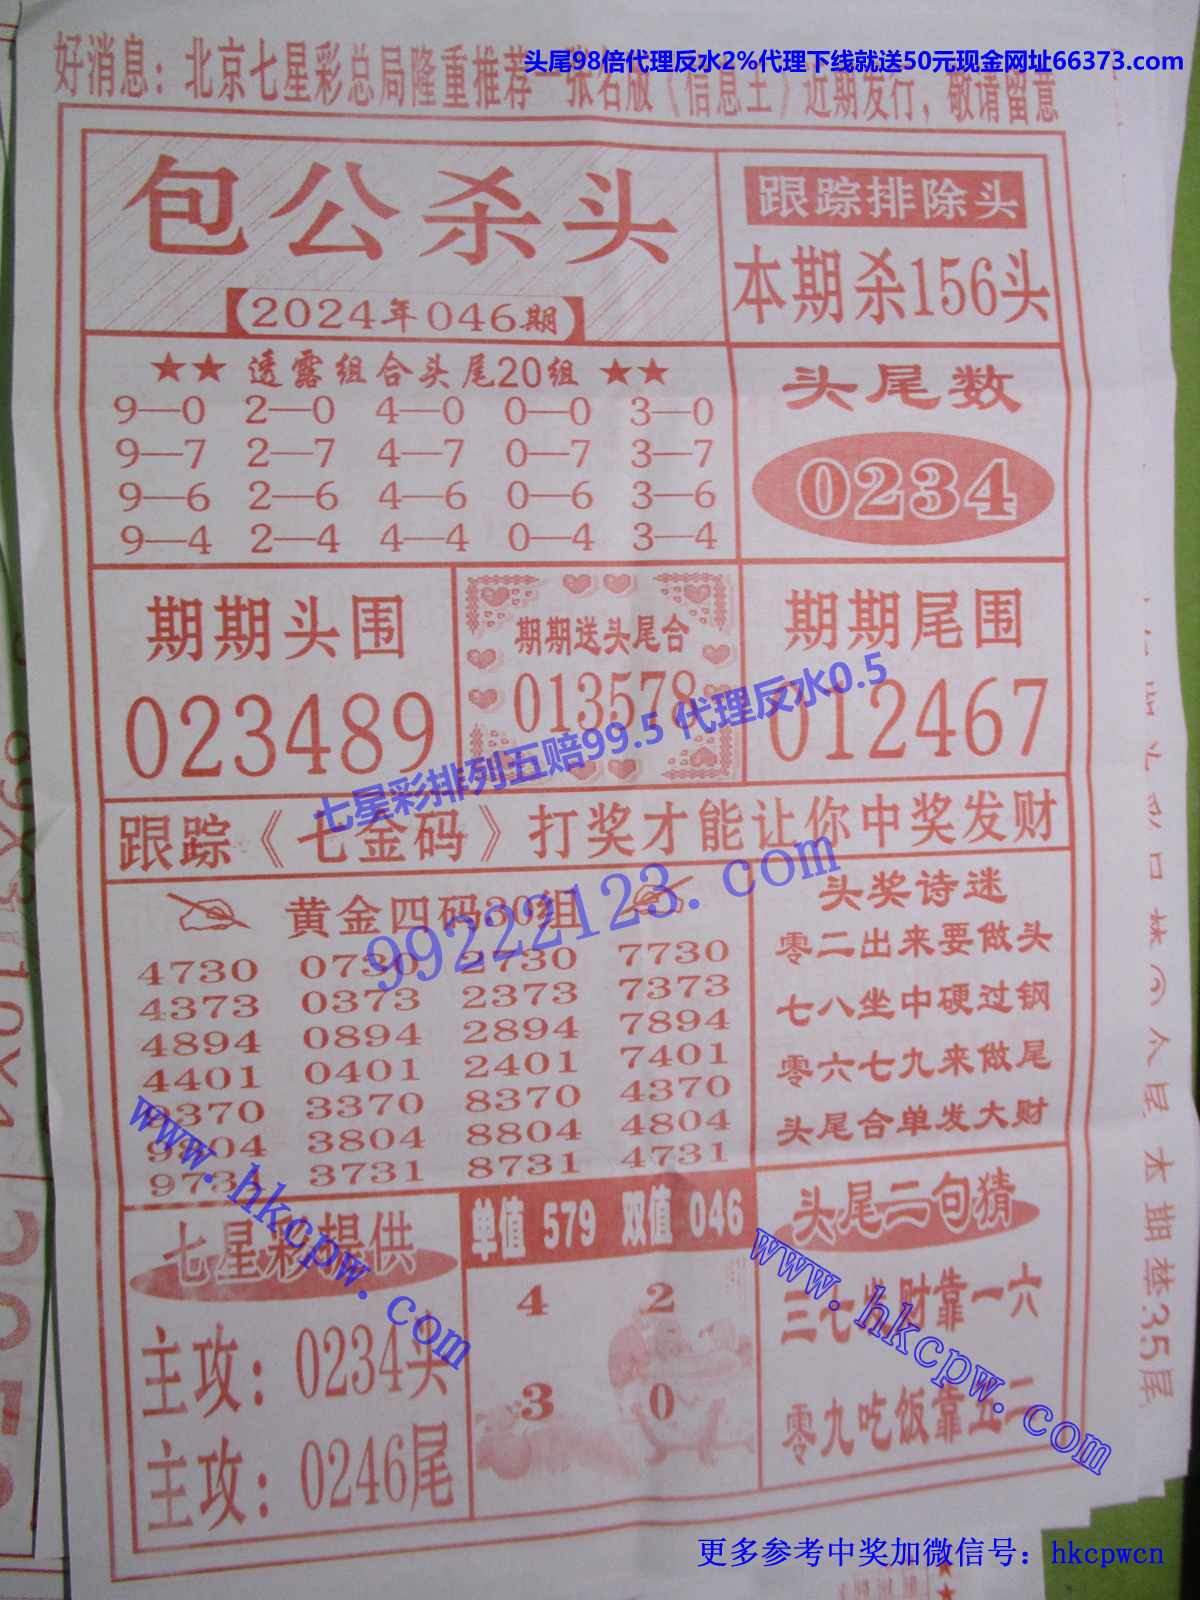 头尾98倍代理反水2%代理下线就送50元现金网址66373.com
好消息：北京七星彩总局隆重推荐一张名版《信息王》近期发行，敬请留意
包公杀头
【2024年046期】
跟踪排除头
本期杀156头
★★ 透露组合头尾20组 ★★
9—0 2—0 4—0 0—0 3—0
9—7 2—7 4—7 0—7 3—7
9—6 2—6 4—6 0—6 3—6
9—4 2—4 4—4 0—4 3—4
头尾数
0234
期期头围
023489
期期送头尾合
013578
期期尾围
012467
七星彩排列五赔99.5 代理反水0.5
跟踪《七金码》打奖才能让你中奖发财
99222123.com
黄金四码30组
4730 0730 2730 7730
4373 0373 2373 7373
4894 0894 2894 7894
4401 0401 2401 7401
9370 3370 8370 4370
9804 3804 8804 4804
9731 3731 8731 4731
头奖诗迷
零二出来要做头
七八坐中硬过钢
零六七九来做尾
头尾合单发大财
www.hkcpw.com
七星彩提供
主攻：0234头
主攻：0246尾
单值 579 双值 046
4 2
3 0
头尾二句猜
三七发财靠一六
零九吃饭靠五二
www.hkcpw.com
本期禁35尾
更多参考中奖加微信号：hkcpwcn